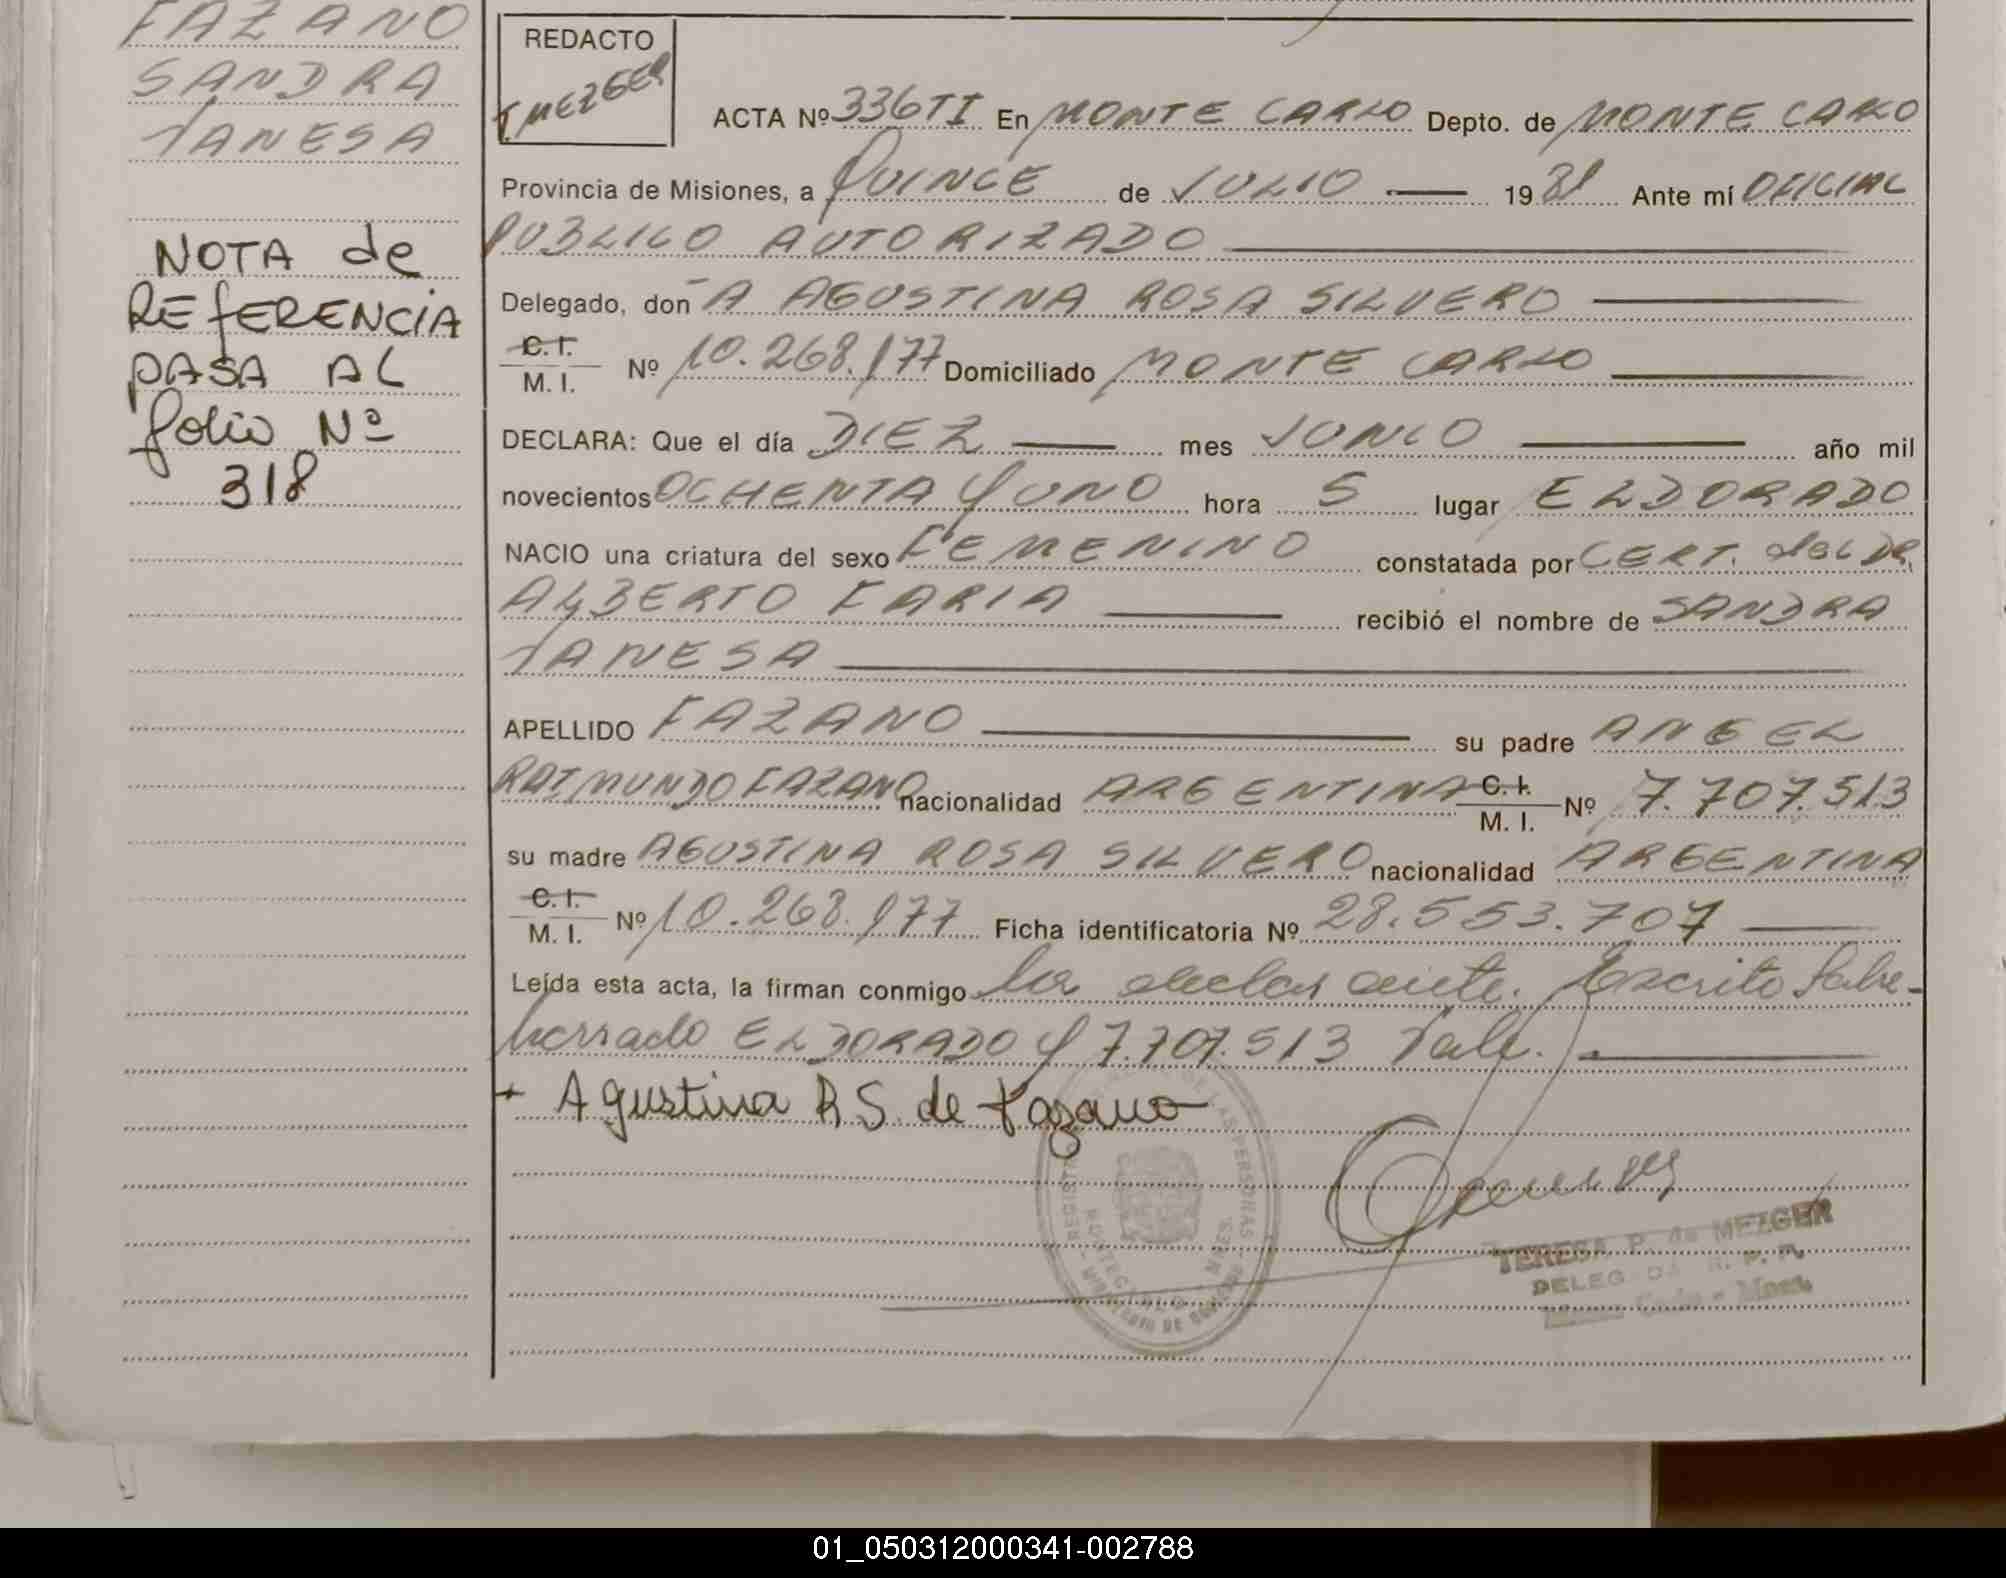 FAZANO
SANDRA
VANESA
NOTA de
REFERENCIA
PASA AL
folio Nº
318
REDACTO
T. MEZGER
ACTA Nº 336TI En MONTE CARLO Depto. de MONTE CARLO
Provincia de Misiones, a QUINCE de JULIO 1981 Ante mí OFICIAL
PUBLICO AUTORIZADO
Delegado, don A AGUSTINA ROSA SILVERO
C. I.
M. I. Nº 10.268.177 Domiciliado MONTE CARLO
DECLARA: Que el día DIEZ mes JUNIO año mil
novecientos OCHENTA Y UNO hora 5 lugar ELDORADO
NACIO una criatura del sexo FEMENINO constatada por CERT. del DR
ALBERTO FARIA recibió el nombre de SANDRA
VANESA
APELLIDO FAZANO su padre ANGEL
RAIMUNDO FAZANO nacionalidad ARGENTINA C. I. M. I. Nº 7.707.513
su madre AGUSTINA ROSA SILVERO nacionalidad ARGENTINA
C. I.
M. I. Nº 10.268.177 Ficha identificatoria Nº 28.553.707
Leída esta acta, la firman conmigo la declarante. Escrito Sobre-
borrado ELDORADO Y 7.707.513 Vale.
+ Agustina R S. de Fazano
TERESA P. de MEZGER
DELEGADA R. P. P.